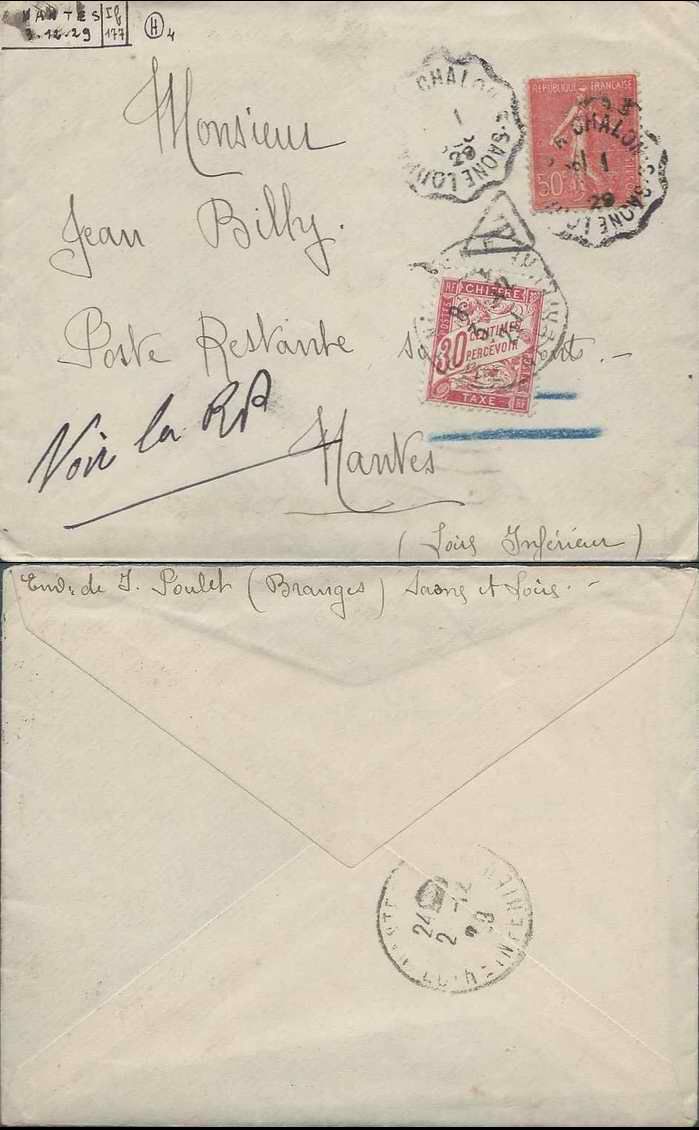 NANTES If
3.12.29 177 H 4
CHALON-S-SAONE
1
29
REPUBLIQUE FRANÇAISE
50
POSTES
CHALON-S-SAONE
1
29
Monsieur
Jean Billy.
T
RF CHIFFRE
POSTES
30 CENTIMES
PERCEVOIR
TAXE RF
Poste Restante
Voir la RP
Nantes
(Loire Inférieur)
Env: de J. Poulet (Branges) Saone et Loire.-
24
2 -12
29